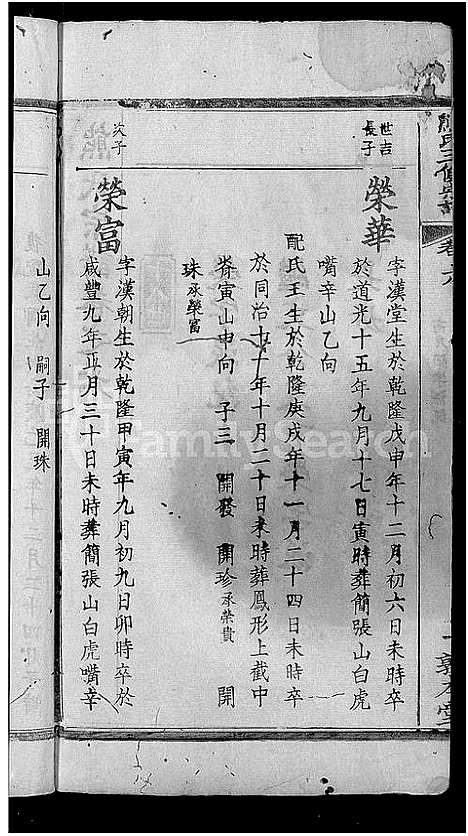 熊氏三修
卷六
敦本堂
世吉長子
榮華
字漢堂生於乾隆戊申年十二月初六日未時卒
於道光十五年九月十七日寅時葬簡張山白虎
嘴辛山乙向
配氏王生於乾隆庚戌年十一月二十四日未時卒
於同治十年十月二十日未時葬鳳形上截中
脊寅山申向 子三 開發 開珍承榮貴 開
珠承榮富
次子
榮富
字漢朝生於乾隆甲寅年九月初九日卯時卒於
咸豐九年正月三十日未時葬簡張山白虎嘴辛
山乙向 嗣子 開珠
FamilySearch